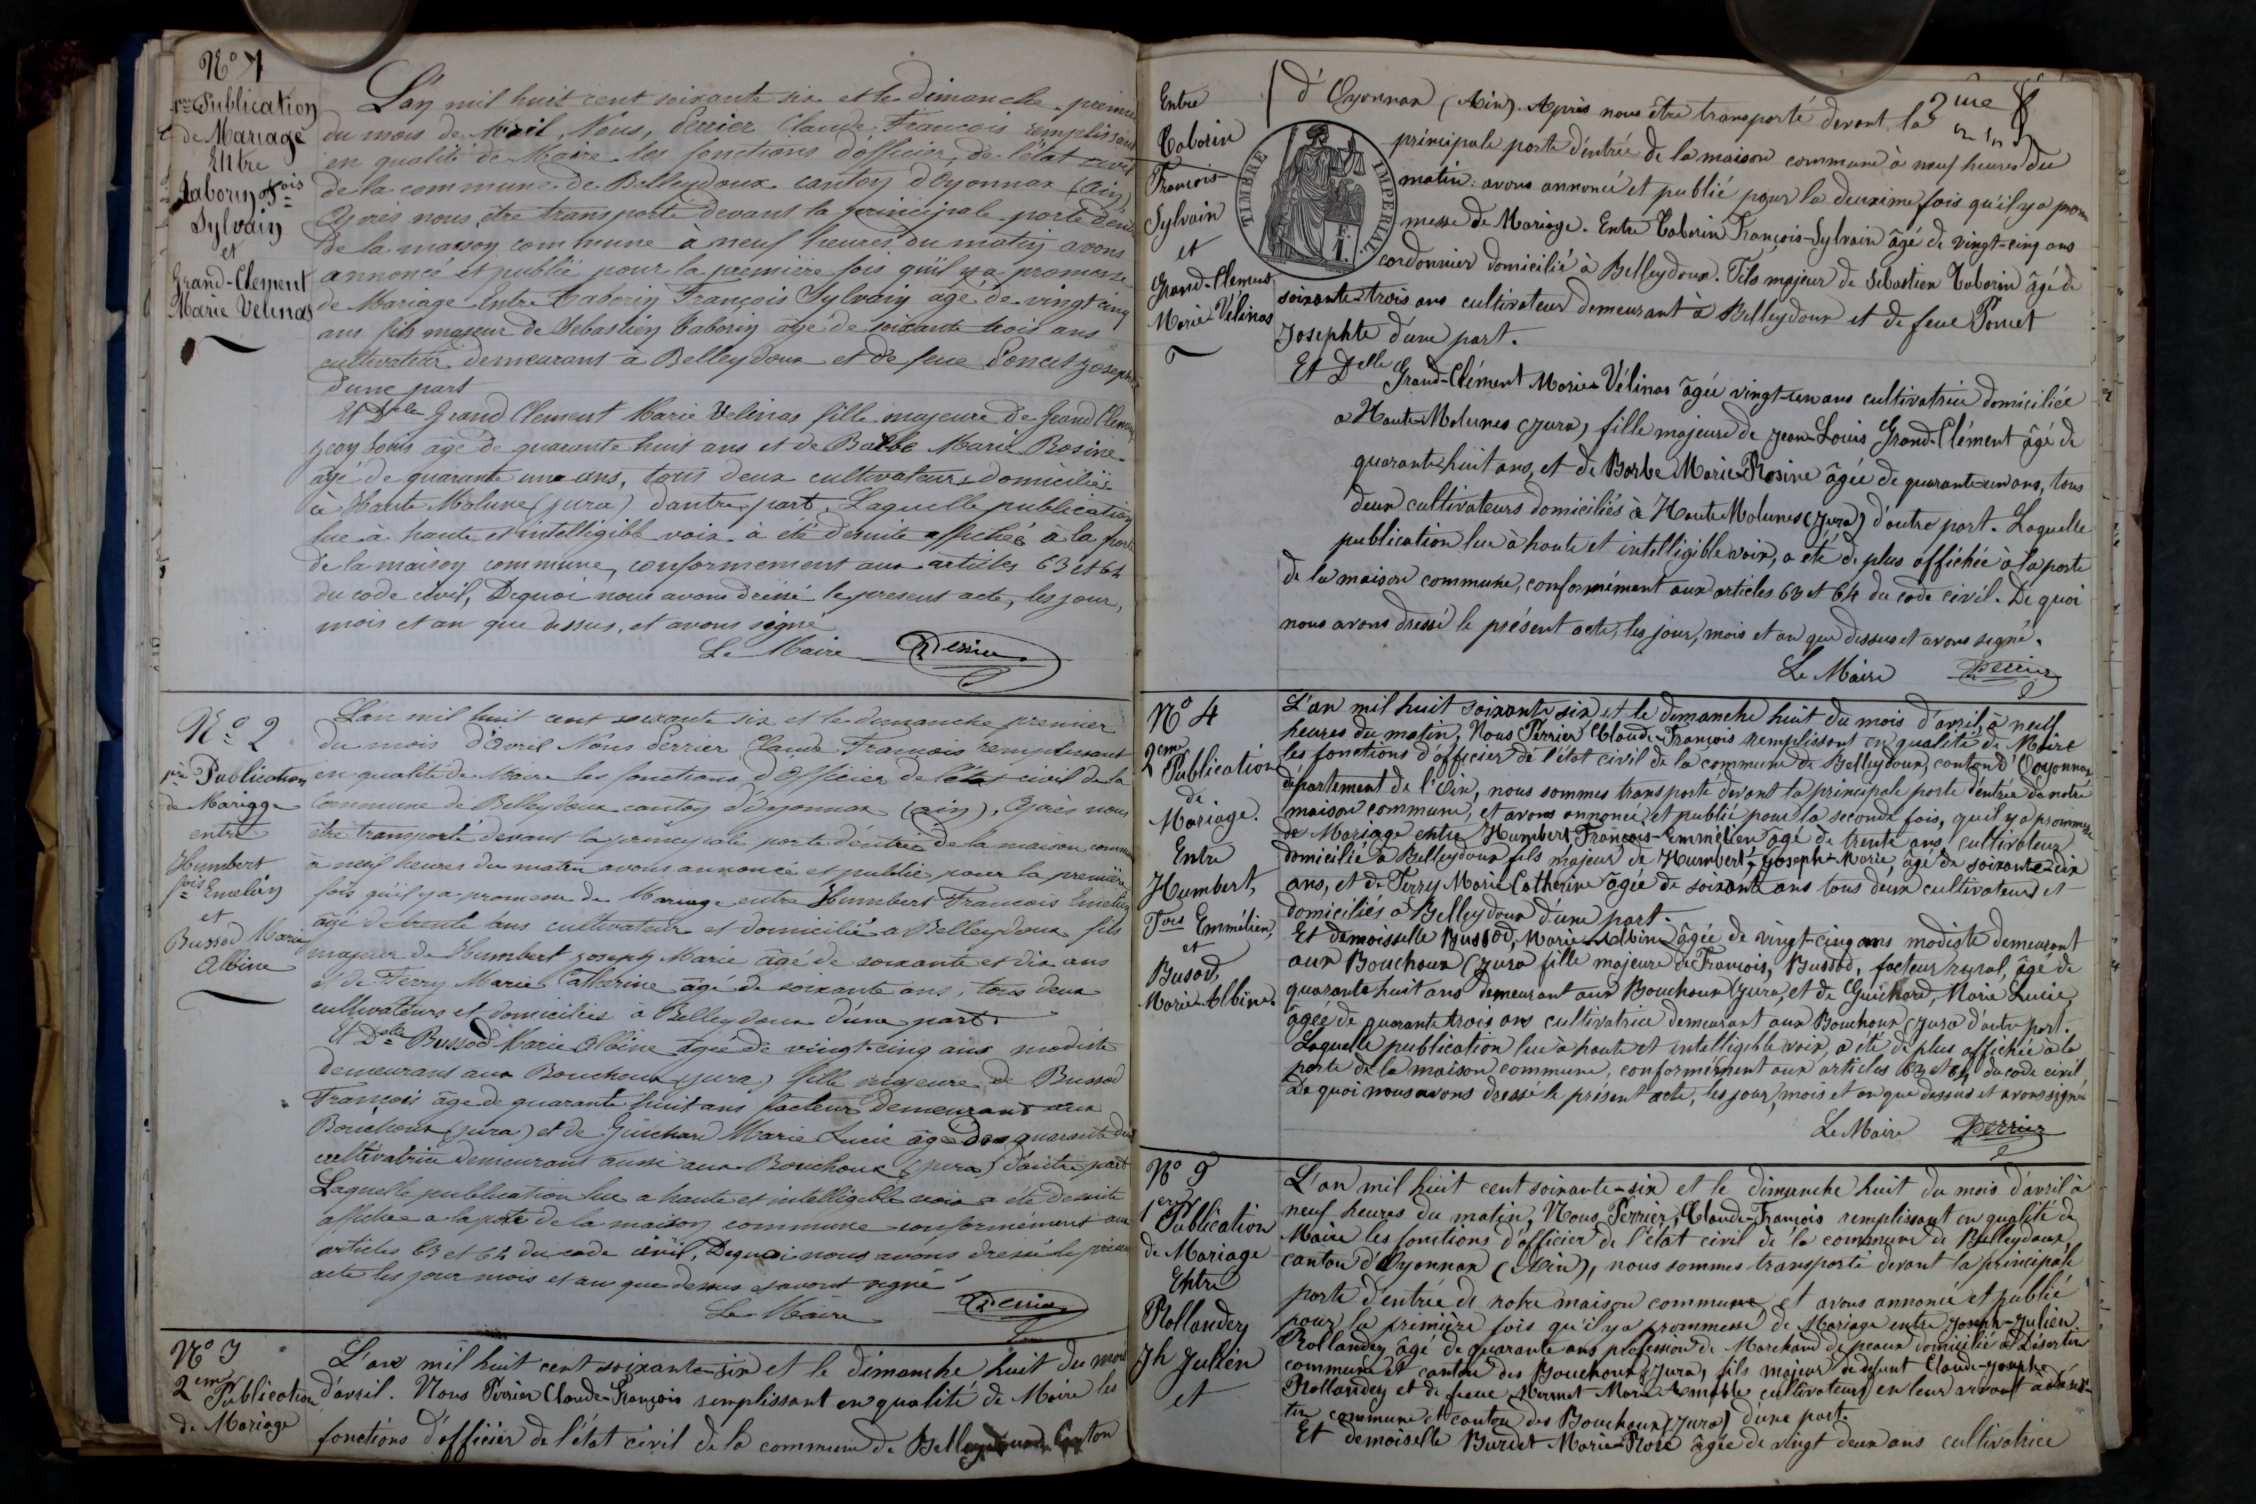 No 1
1ere Publication
de Mariage
Entre
Taborin Fois
Sylvain
et
Grand-Clement
Marie Velinas
L'an mil huit cent soixante six et le Dimanche premier
du mois de Avril, Nous, Perrier Claude François remplissant
en qualité de Maire les fonctions d'officier de l'état civil
de la commune de Belleydoux canton d'Oyonnax (Ain)
Après nous être transporté devant la principale porte d'entrée
de la maison commune à neuf heures du matin avons
annoncé et publié pour la première fois qu'il y a promesse
de Mariage Entre Taborin François Sylvain agé de vingt cinq
ans fils majeur de Sébastien Taborin âgé de soixante trois ans
cultivateur demeurant à Belleydoux et de feue Poncet Josephte
d'une part
Et Delle Grand Clement Marie Velinas fille majeure de Grand Clement
Jean Louis âgé de quarante huit ans et de Barbe Marie Rosine
âgé de quarante une ans, tous deux cultivateurs domiciliés
à Haute Molune (jura) d'autre part, Laquelle publication
lue à haute et intelligible voix à été desuite affichée à la porte
de la maison commune, conformement aux articles 63 et 64
du code civil, Dequoi nous avons dressé le present acte, les jour,
mois et an que dessus, et avons signé
Le Maire Perrier
No 2
1re Publication
de Mariage
entre
Humbert
fois Emelien
et
Bussod Marie
Albine
L'an mil huit cent soixante six et le dimanche premier
du mois d'Avril Nous Perrier Claude François remplissant
en qualité de Maire les fonctions d'Officier de l'état civil de la
Commune de Belleydoux canton d'oyonnax (ain), Après nous
être transporté devant la principale porte d'entrée de la maison commune
à neuf heures du matin avons annoncé et publié pour la première
fois qu'il y a promesse de Mariage entre Humbert François Emelien
âgé de trente ans cultivateur et domicilié a Belleydoux fils
majeur de Humbert joseph Marie âgé de soixante et dix ans
et de Ferry Marie Catherine âgé de soixante ans, tous deux
cultivateurs et domicilies à Belleydoux d'une part
Et Delle Bussod Marie Albine âgée de vingt-cinq ans modiste
demeurant aux Bouchoux (jura) fille majeure de Bussod
François âgé de quarante huit ans facteur demeurant aux
Bouchoux (jura) et de Guichard Marie Lucie âgé de quarante
cultivatrice demeurant aussi aux Bouchoux (jura) d'autre part
Laquelle publication lue a haute et intelligible voix a été desuite
affichee a la porte de la maison commune conformément aux
articles 63 et 64 du code civil, Dequoi nous avons dressé le présent
acte les jour mois et an que dessus et avons signé
Le Maire Perrier
No 3
2eme Publication
de Mariage
L'an mil huit cent soixante-six et le dimanche huit du mois
d'avril. Nous Perrier Claude-François remplissant en qualité de Maire les
fonctions d'officier de l'état civil de la commune de Belleydoux Canton
Entre
Taborin
François-
Sylvain
et
Grand-Clement
Marie-Vélinas
d'Oyonnax (Ain). Après nous être transporté devant la
principale porte d'entrée de la maison commune à neuf heures du
TIMBRE IMPERIAL
matin: avons annoncé et publié pour la deuxième fois qu'il y a pro-
messe de Mariage. Entre Taborin François-Sylvain âgé de vingt-cinq ans
cordonnier domicilié à Belleydoux. Fils majeur de Sebastien Taborin âgé de
soixante-trois ans cultivateur demeurant à Belleydoux et de feue Poncet
Josephte d'une part.
Et Delle Grand-Clément Marie-Vélinas âgée vingt-un ans cultivatrice domiciliée
a Haute-Molunes (jura) fille majeure de Jean-Louis Grand-Clément âgé de
quarante-huit ans, et de Barbe Marie-Rosine âgée de quarante-un ans, tous
deux cultivateurs domiciliés à Haute Molunes (Jura) d'autre part. Laquelle
publication lue à haute et intelligible voix, a été de plus affichée à la porte
de la maison commune, conformément aux articles 63 et 64 du code civil. De quoi
nous avons dressé le présent acte, les jour, mois et an que dessus et avons signé.
Le Maire Perrier
No 4
2eme
Publication
de
Mariage.
Entre
Humbert,
Fois Emmélien,
et
Busod,
Marie-Albine
L'an mil huit soixante six et le dimanche huit du mois d'avril à neuf
heures du matin, Nous Perrier Claude-François remplissant en qualité de Maire
les fonctions d'officier de l'état civil de la commune de Belleydoux, canton d'Oyonnax,
département de l'Ain, nous sommes transporté devant la principale porte d'entrée de notre
maison commune, et avons annoncé et publié pour la seconde fois, qu'il y a promesse
de Mariage entre Humbert, François-Emmelien âgé de trente ans, cultivateur
domicilié à Belleydoux fils majeur de Humbert, Joseph-Marie, âgé de soixante-dix
ans, et de Ferry Marie Catherine âgée de soixante ans tous deux cultivateurs et
domiciliés à Belleydoux d'une part.
Et demoisselle Bussod, Marie-Albine âgée de vingt-cinq ans modiste demeurant
aux Bouchoux (Jura fille majeure de François, Bussod, facteur rural, âgé de
quarante huit ans demeurant aux Bouchoux (Jura, et de Guichard, Marie Lucie,
âgée de quarante trois ans cultivatrice demeurant aux Bouchoux (Jura d'autre part.
Laquelle publication lue à haute et intelligible voix, a été de plus affichée à la
porte de la maison commune, conformément aux articles 63 et 64 du code civil
De quoi nous avons dressé le présent acte, les jour, mois et an que dessus et avons signé
Le Maire Perrier
No 5
1ere
Publication
de Mariage
Entre
Rollandez
Jh Julien
et
L'an mil huit cent soixante-six et le dimanche huit du mois d'avril à
neuf heures du matin, Nous Perrier, Claude-François remplissant en qualité de
Maire les fonctions d'officier de l'état civil de la commune de Belleydoux,
canton d'Oyonnax (Ain), nous sommes transporté devant la principale
porte d'entrée de notre maison commune et avons annoncé et publié
pour la première fois qu'il y a promesse de Mariage entre Joseph-Julien
Rollandez âgé de quarante ans profession de Marchand de peaux domicilié à Désertin
commune et canton des Bouchoux (Jura), fils majeur de defunt Claude-Joseph
Rollandez et de feue Mermet Marie Aimable cultivateurs en leur vivant à Déser-
tin commune et canton des Bouchoux (Jura) d'une part.
Et demoiselle Burdet Marie-Rose âgée de vingt deux ans cultivatrice